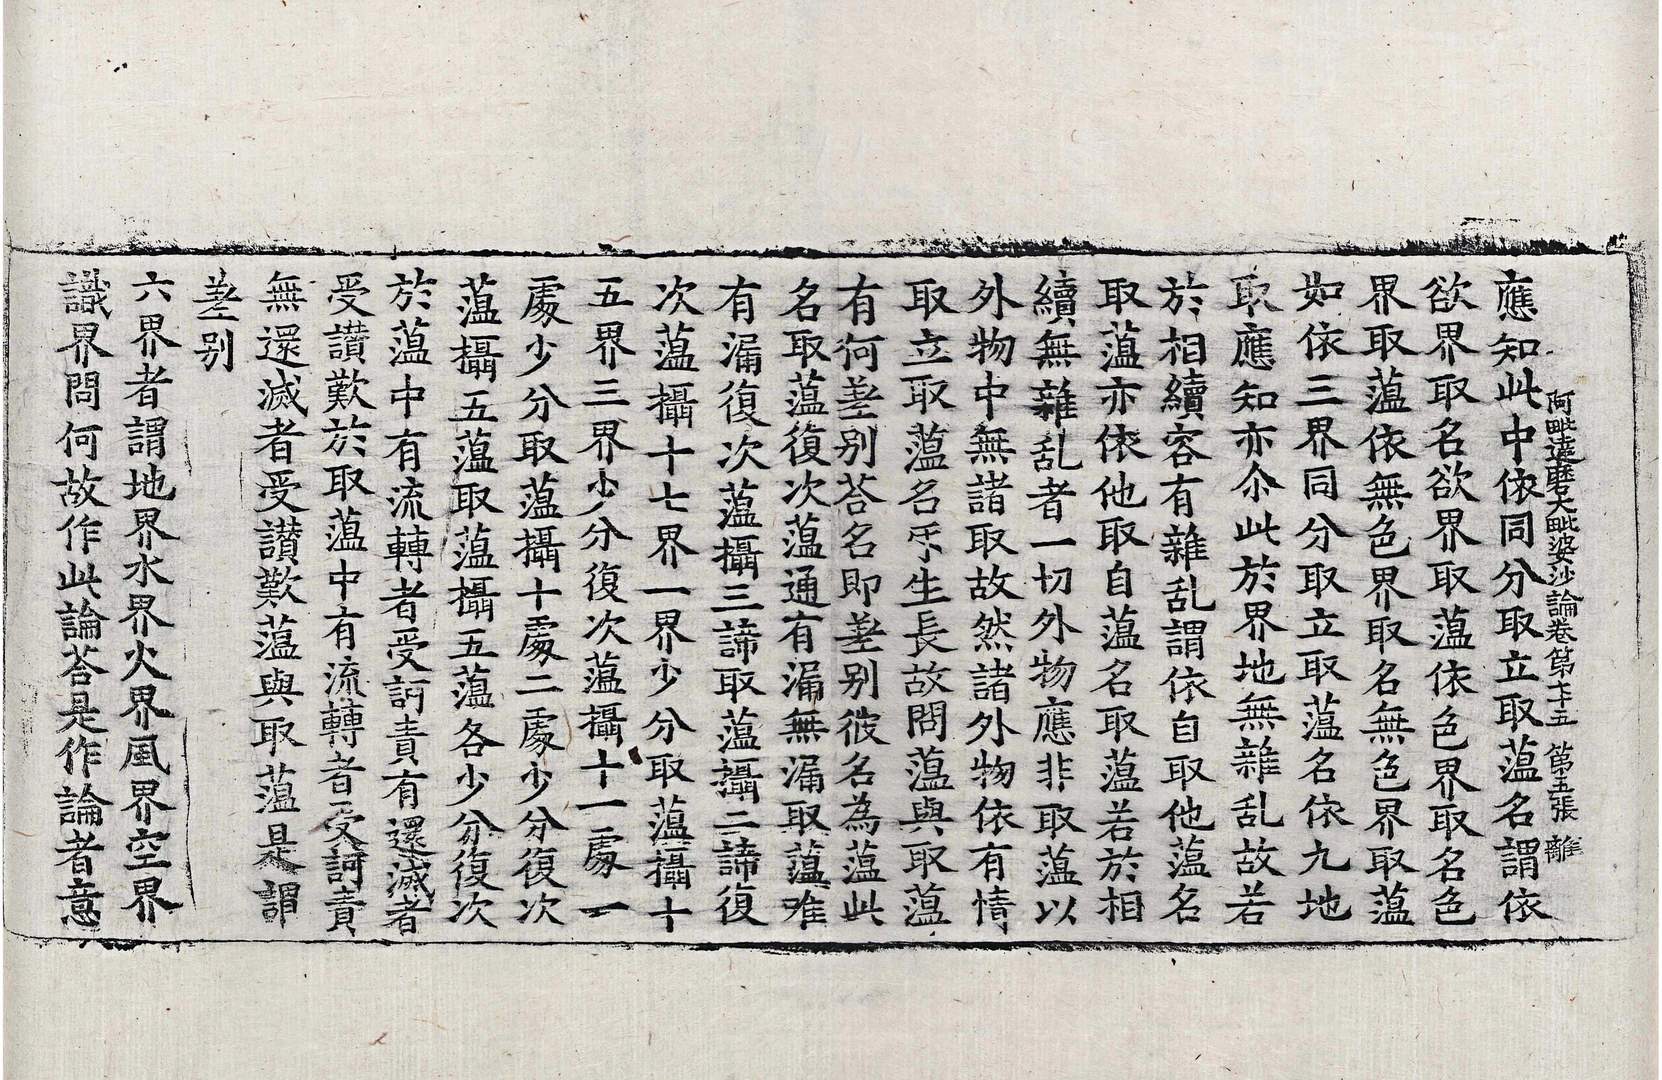 阿毗達磨大毗婆沙論卷第七十五 第五張 離
應知此中依同分取立取薀名謂依
欲界取名欲界取薀依色界取名色
界取薀依無色界取名無色界取薀
如依三界同分取立取薀名依九地
取應知亦尒此於界地無雜乱故若
於相續容有雜乱謂依自取他薀名
取薀亦依他取自薀名取薀若於相
續無雜乱者一切外物應非取薀以
外物中無諸取故然諸外物依有情
取立取薀名所生長故問薀與取薀
有何差別荅名即差別彼名為薀此
名取薀復次薀通有漏無漏取薀唯
有漏復次薀攝三諦取薀攝二諦復
次薀攝十七界一界少分取薀攝十
五界三界少分復次薀攝十一處一
處少分取薀攝十處二處少分復次
薀攝五薀取薀攝五薀各少分復次
於薀中有流轉者受訶責有還滅者
受讃歎於取薀中有流轉者受訶責
無還滅者受讃歎薀與取薀是謂
差別
六界者謂地界水界火界風界空界
識界問何故作此論荅是作論者意